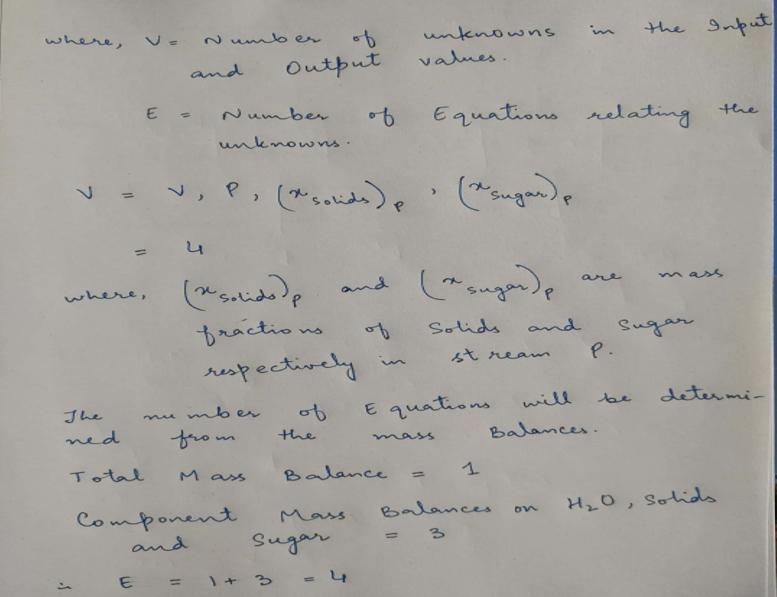 where, V = Number of unknowns in the Input
and Output values.
E = Number of Equations relating the
unknowns.
V = V, P, (x solids)p , (x sugar)p
= 4
where, (x solids)p and (x sugar)p are mass
fractions of Solids and Sugar
respectively in stream P.
The number of Equations will be determi-
ned from the mass Balances.
Total Mass Balance = 1
Component Mass Balances on H2O, Solids
and Sugar = 3
∴ E = 1 + 3 = 4